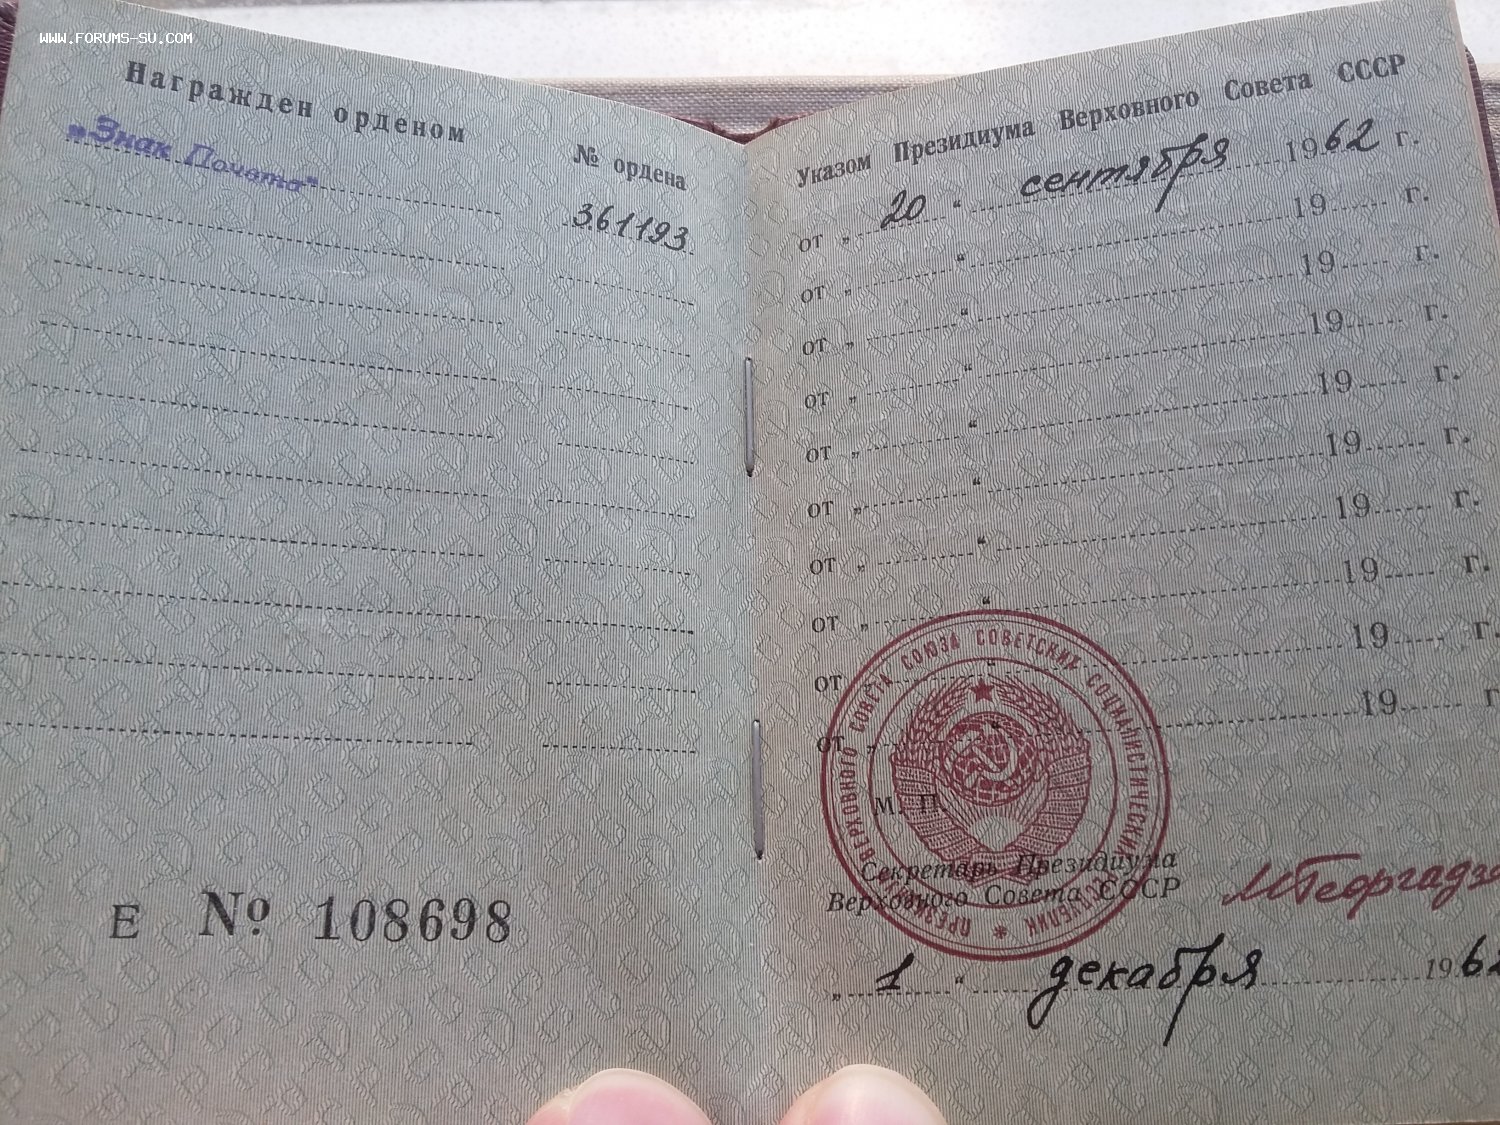 WWW.FORUMS-SU.COM
Награжден орденом
„Знак Почета"
№ ордена
361193
Е № 108698
Указом Президиума Верховного Совета СССР
от „ 20 “ сентября 1962 г.
от „ “ 19 г.
от „ “ 19 г.
от „ “ 19 г.
от „ “ 19 г.
от „ “ 19 г.
от „ “ 19 г.
от „ “ 19 г.
от „ “ 19 г.
от „ “ 19 г.
ПРЕЗИДИУМ ВЕРХОВНОГО СОВЕТА СОЮЗА СОВЕТСКИХ СОЦИАЛИСТИЧЕСКИХ РЕСПУБЛИК
М. П.
Секретарь Президиума
Верховного Совета СССР
МГеоргадзе
„ 1 “ декабря 1962